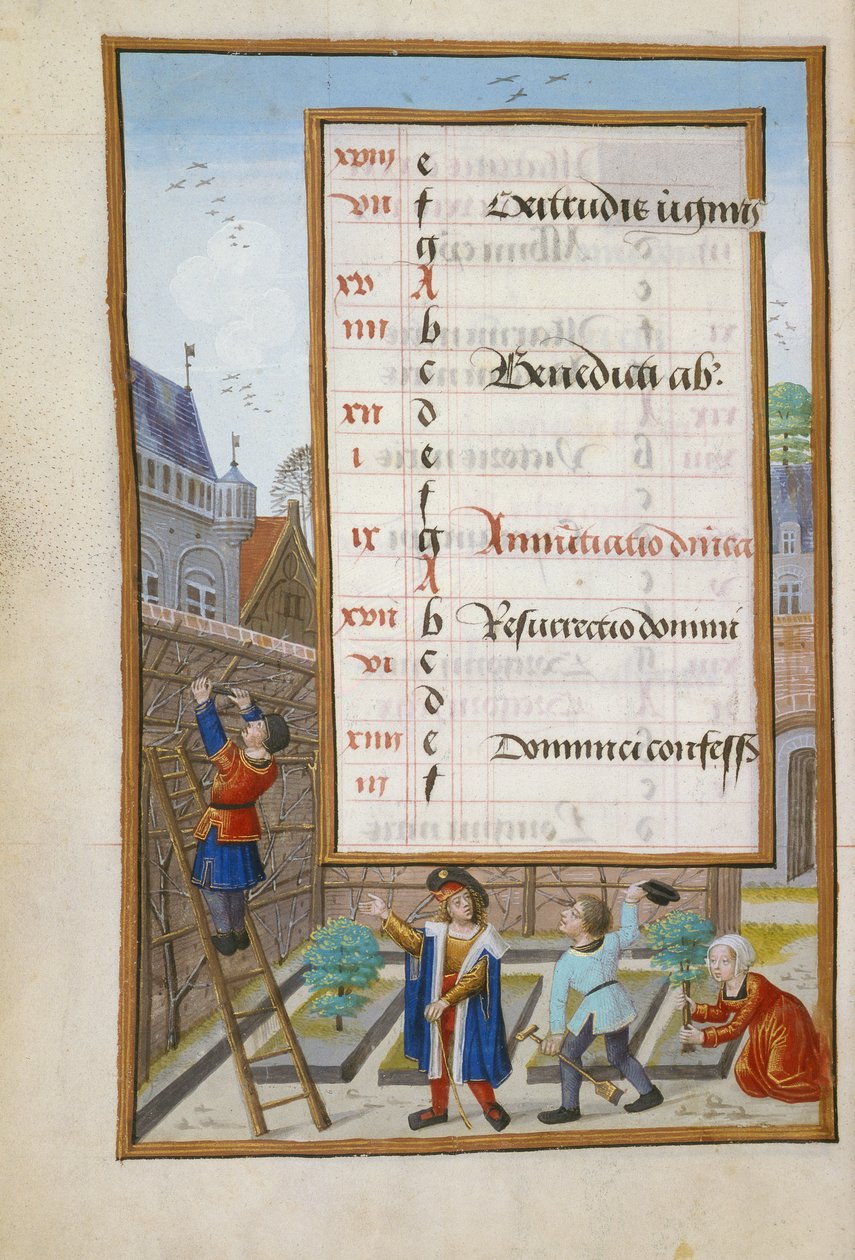 xviij e
vii f Gertrudis v̄ginis
g
xv A
iiii b
c Benedicti ab.
xii d
i e
f
ix g Annūtiatio dn̄ica
A
xvii b Resurrectio domini
vi c
d
xiiij e Dominici confess
iij f